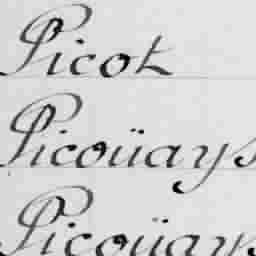 Picot
Picoüays
Picoüays